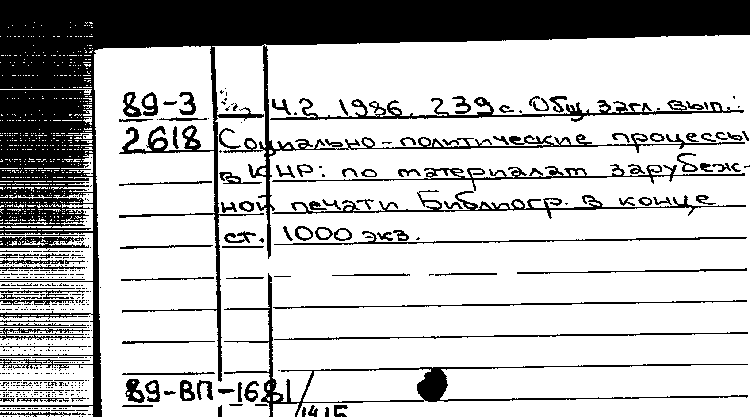 89-3 Ч.2 1986. 239 с. Общ. загл. вып.:
2618 Социально-политические процессы
в КНР: по материалам зарубеж-
ной печати Библиогр. в конце
ст. 1000 экз.
89-ВП-1681/
1415